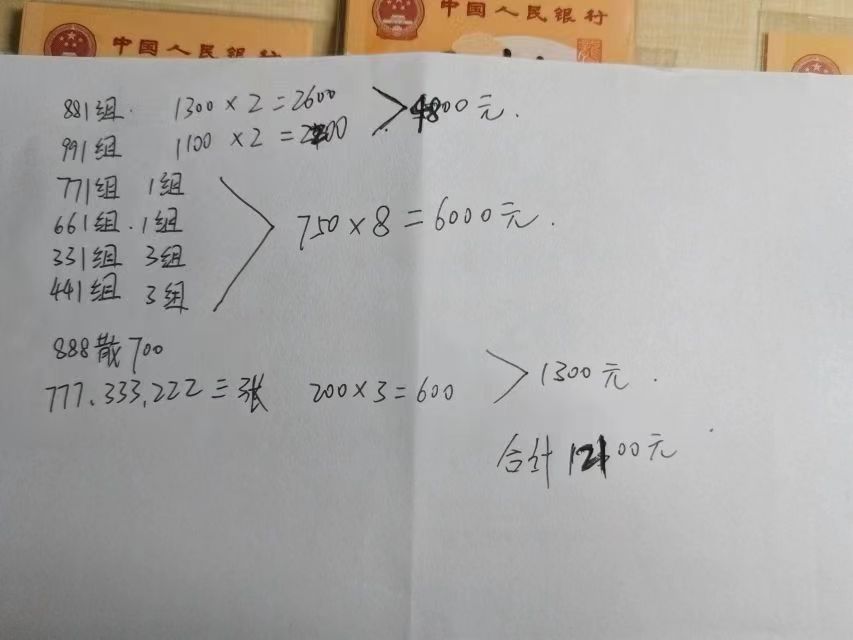 中国人民银行
中国人民银行
881组. 1300×2=2600
991组 1100×2=2200 >4800元.
771组 1组
661组.1组
331组 3组
441组 3组
750×8=6000元.
888散700
777.333.222三张 200×3=600 >1300元.
合计12100元